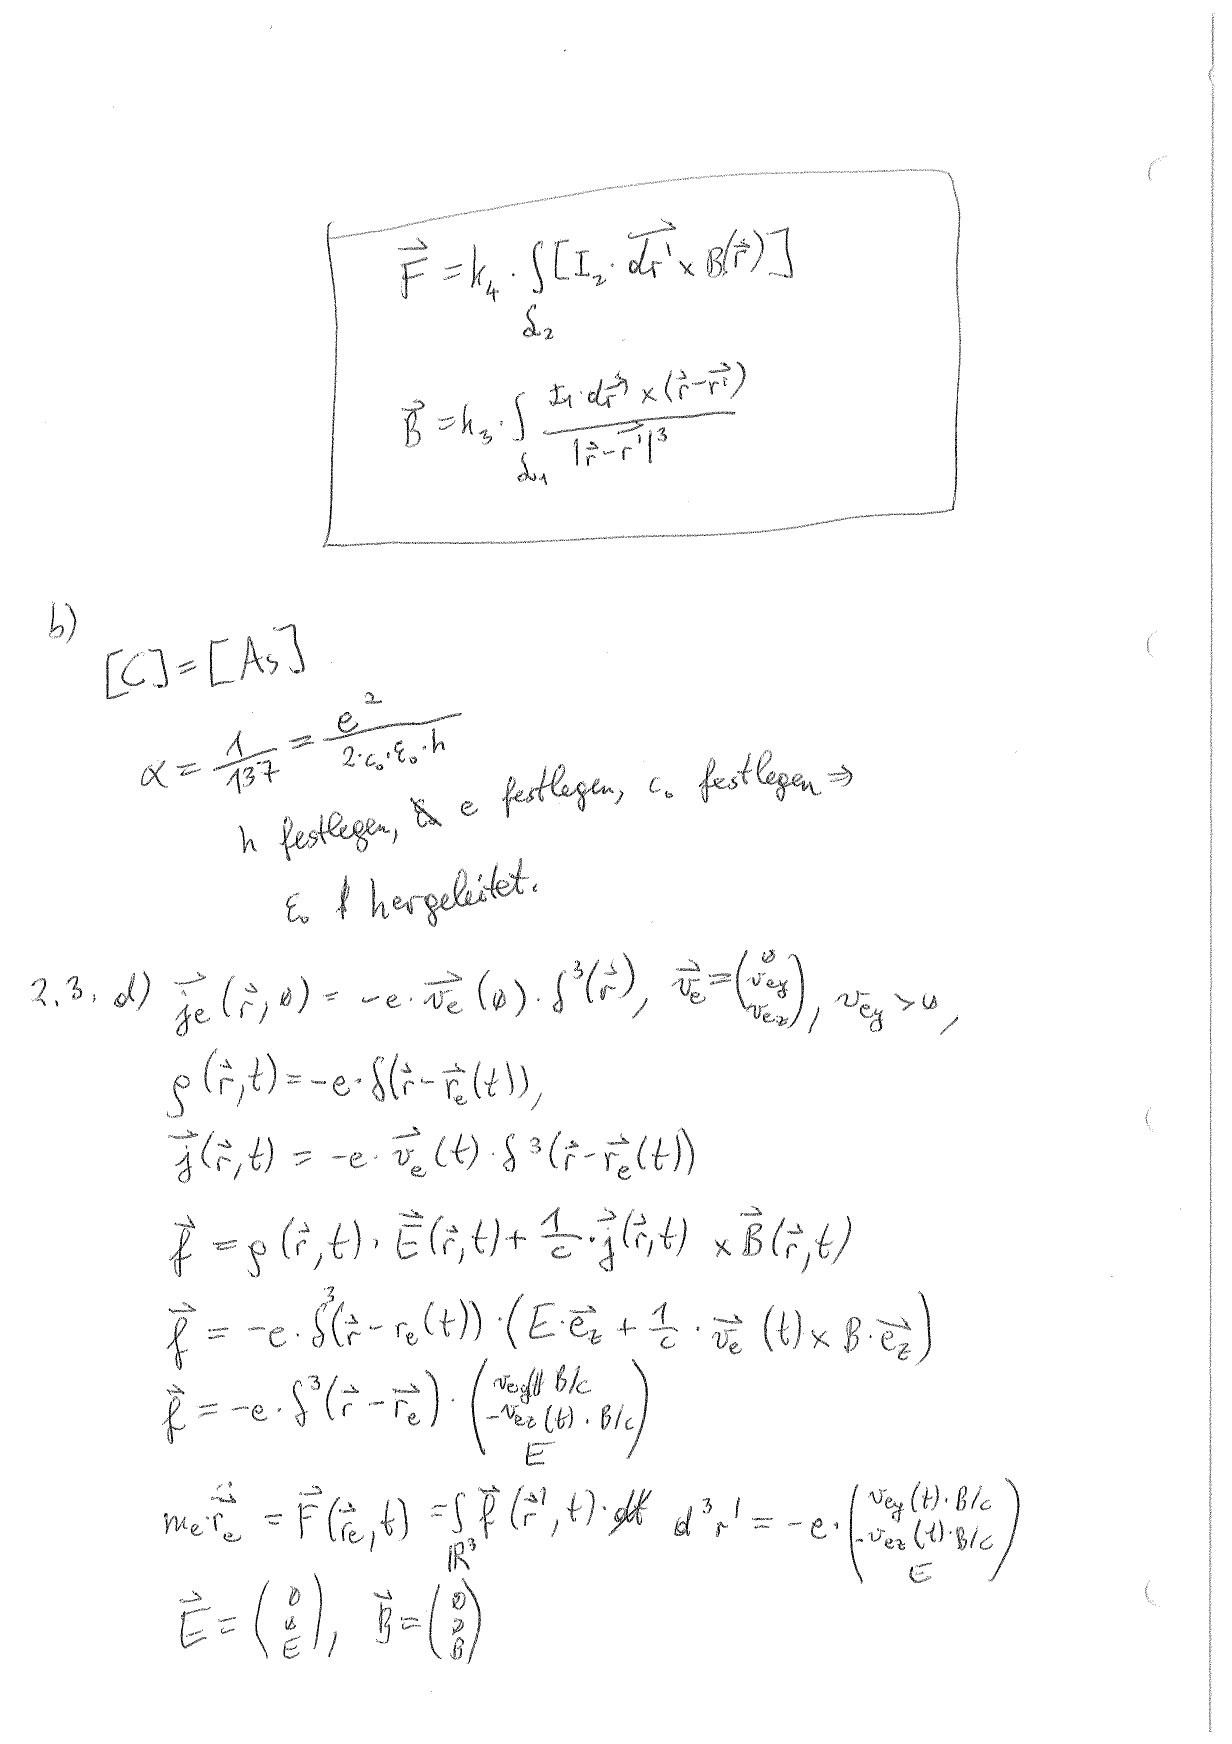 F⃗ = k₄ · ∫_{S₂} [I₂ · d⃗r' × B(r⃗)]
B⃗ = k₃ · ∫_{S₁} I₁ · d⃗r' × (r⃗ − r⃗') / |r⃗ − r⃗'|³
b)
[C] = [As]
α = 1/137 = e² / (2·c₀·ε₀·h)
h festlegen, e festlegen, c₀ festlegen ⇒
ε₀ hergeleitet.
2.3. d) j⃗e (r⃗, 0) = −e · v⃗e (0) · δ³(r⃗), v⃗e = (0, vey, vez), vey > 0,
ρ(r⃗, t) = −e · δ(r⃗ − r⃗e(t)),
j⃗(r⃗, t) = −e · v⃗e(t) · δ³(r⃗ − r⃗e(t))
f⃗ = ρ(r⃗, t) · E⃗(r⃗, t) + 1/c · j⃗(r⃗, t) × B⃗(r⃗, t)
f⃗ = −e · δ³(r⃗ − re(t)) · (E · e⃗z + 1/c · v⃗e (t) × B · e⃗z)
f⃗ = −e · δ³(r⃗ − r⃗e) · (vey B/c, −vez(t) · B/c, E)
me · r̈⃗e = F⃗(r⃗e, t) = ∫_{ℝ³} f⃗(r⃗', t) · d³r' = −e · (vey(t) · B/c, −vez(t) · B/c, E)
E⃗ = (0, 0, E), B⃗ = (0, 0, B)